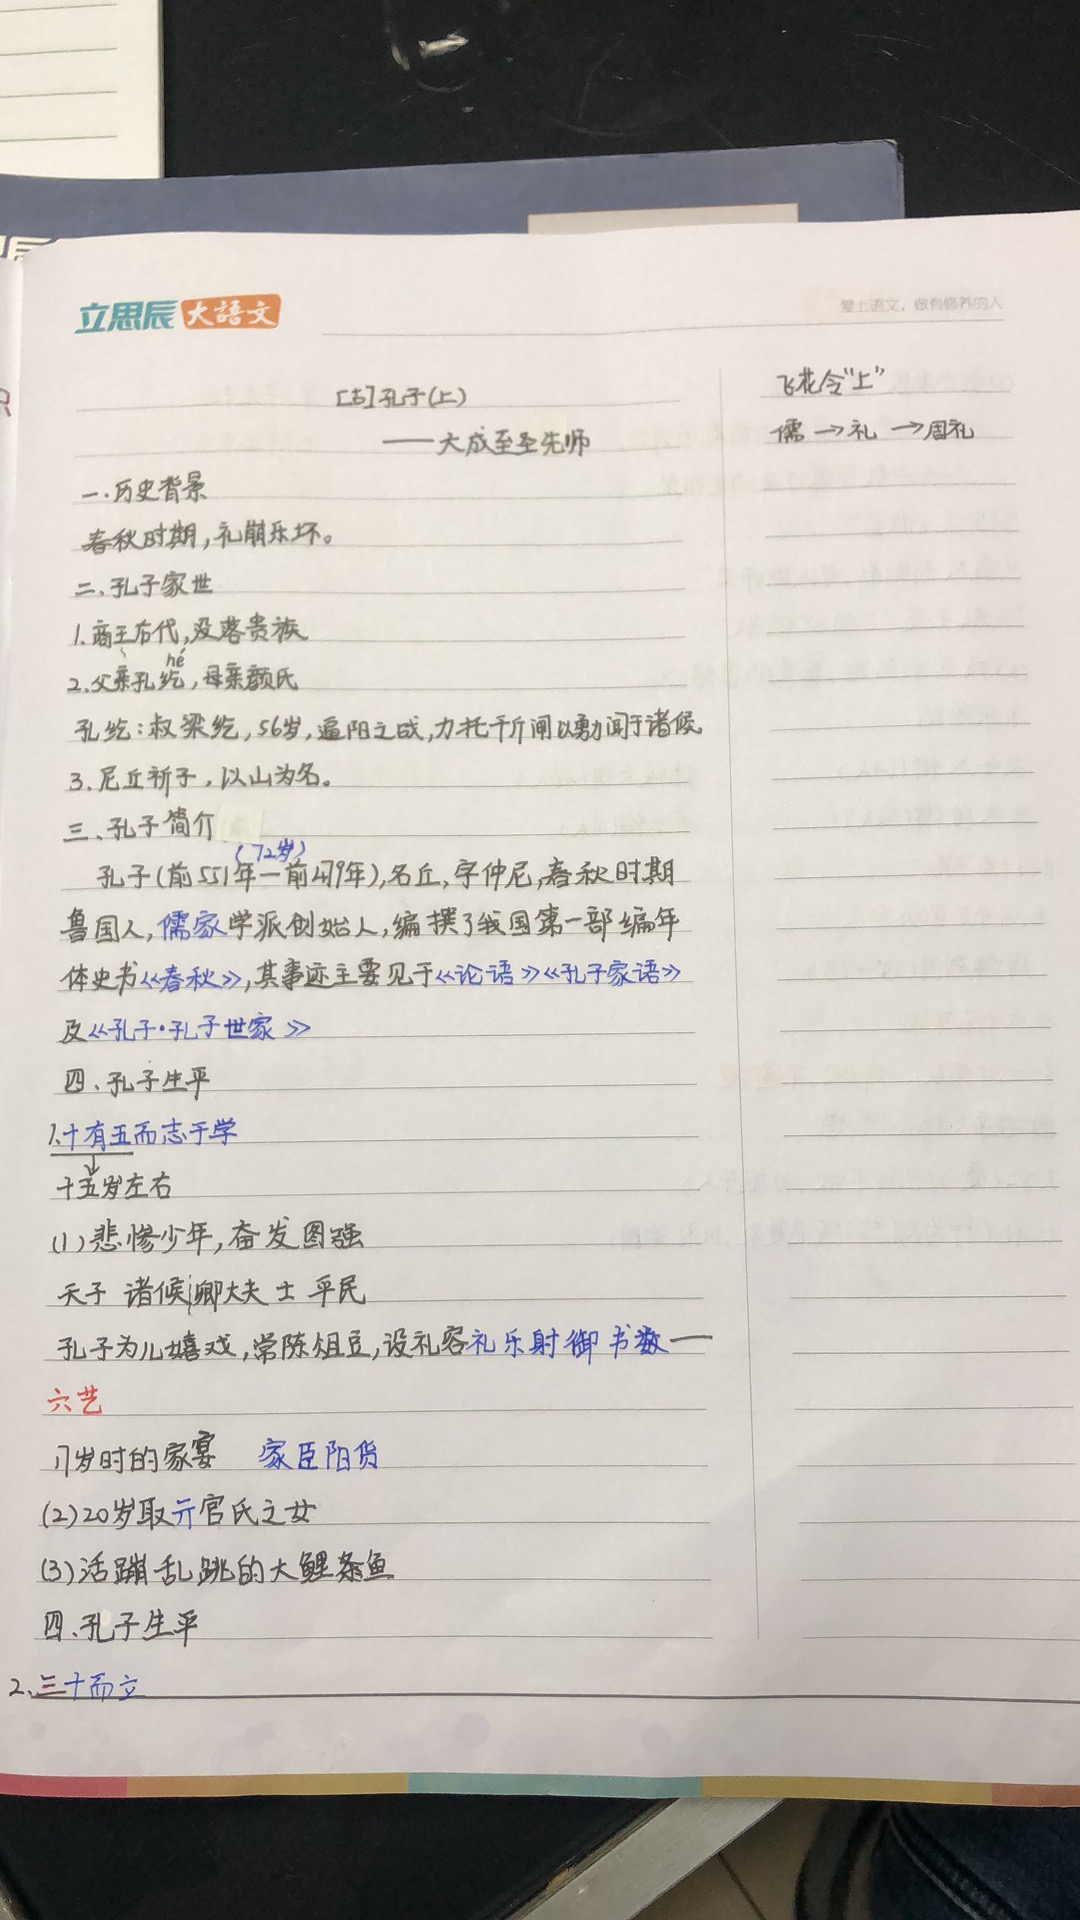 立思辰大語文
爱上语文，做有修养的人
[古]孔子(上)
——大成至圣先师
飞花令“上”
儒→礼→周礼
一.历史背景
春秋时期,礼崩乐坏。
二.孔子家世
1.商王后代,没落贵族
hé
2.父亲孔纥,母亲颜氏
孔纥:叔梁纥,56岁,逼阳之战,力托千斤闸以勇闻于诸候
3.尼丘祈子,以山为名。
三.孔子简介
(72岁)
孔子(前551年—前479年),名丘,字仲尼,春秋时期
鲁国人,儒家学派创始人,编撰了我国第一部编年
体史书《春秋》,其事迹主要见于《论语》《孔子家语》
及《孔子·孔子世家》
四.孔子生平
1.十有五而志于学
十五岁左右
(1)悲惨少年,奋发图强
天子 诸候 卿大夫 士 平民
孔子为儿嬉戏,常陈俎豆,设礼容礼乐射御书数—
六艺
17岁时的家宴 家臣阳货
(2)20岁取亓官氏之女
(3)活蹦乱跳的大鲤条鱼
四.孔子生平
2.三十而立